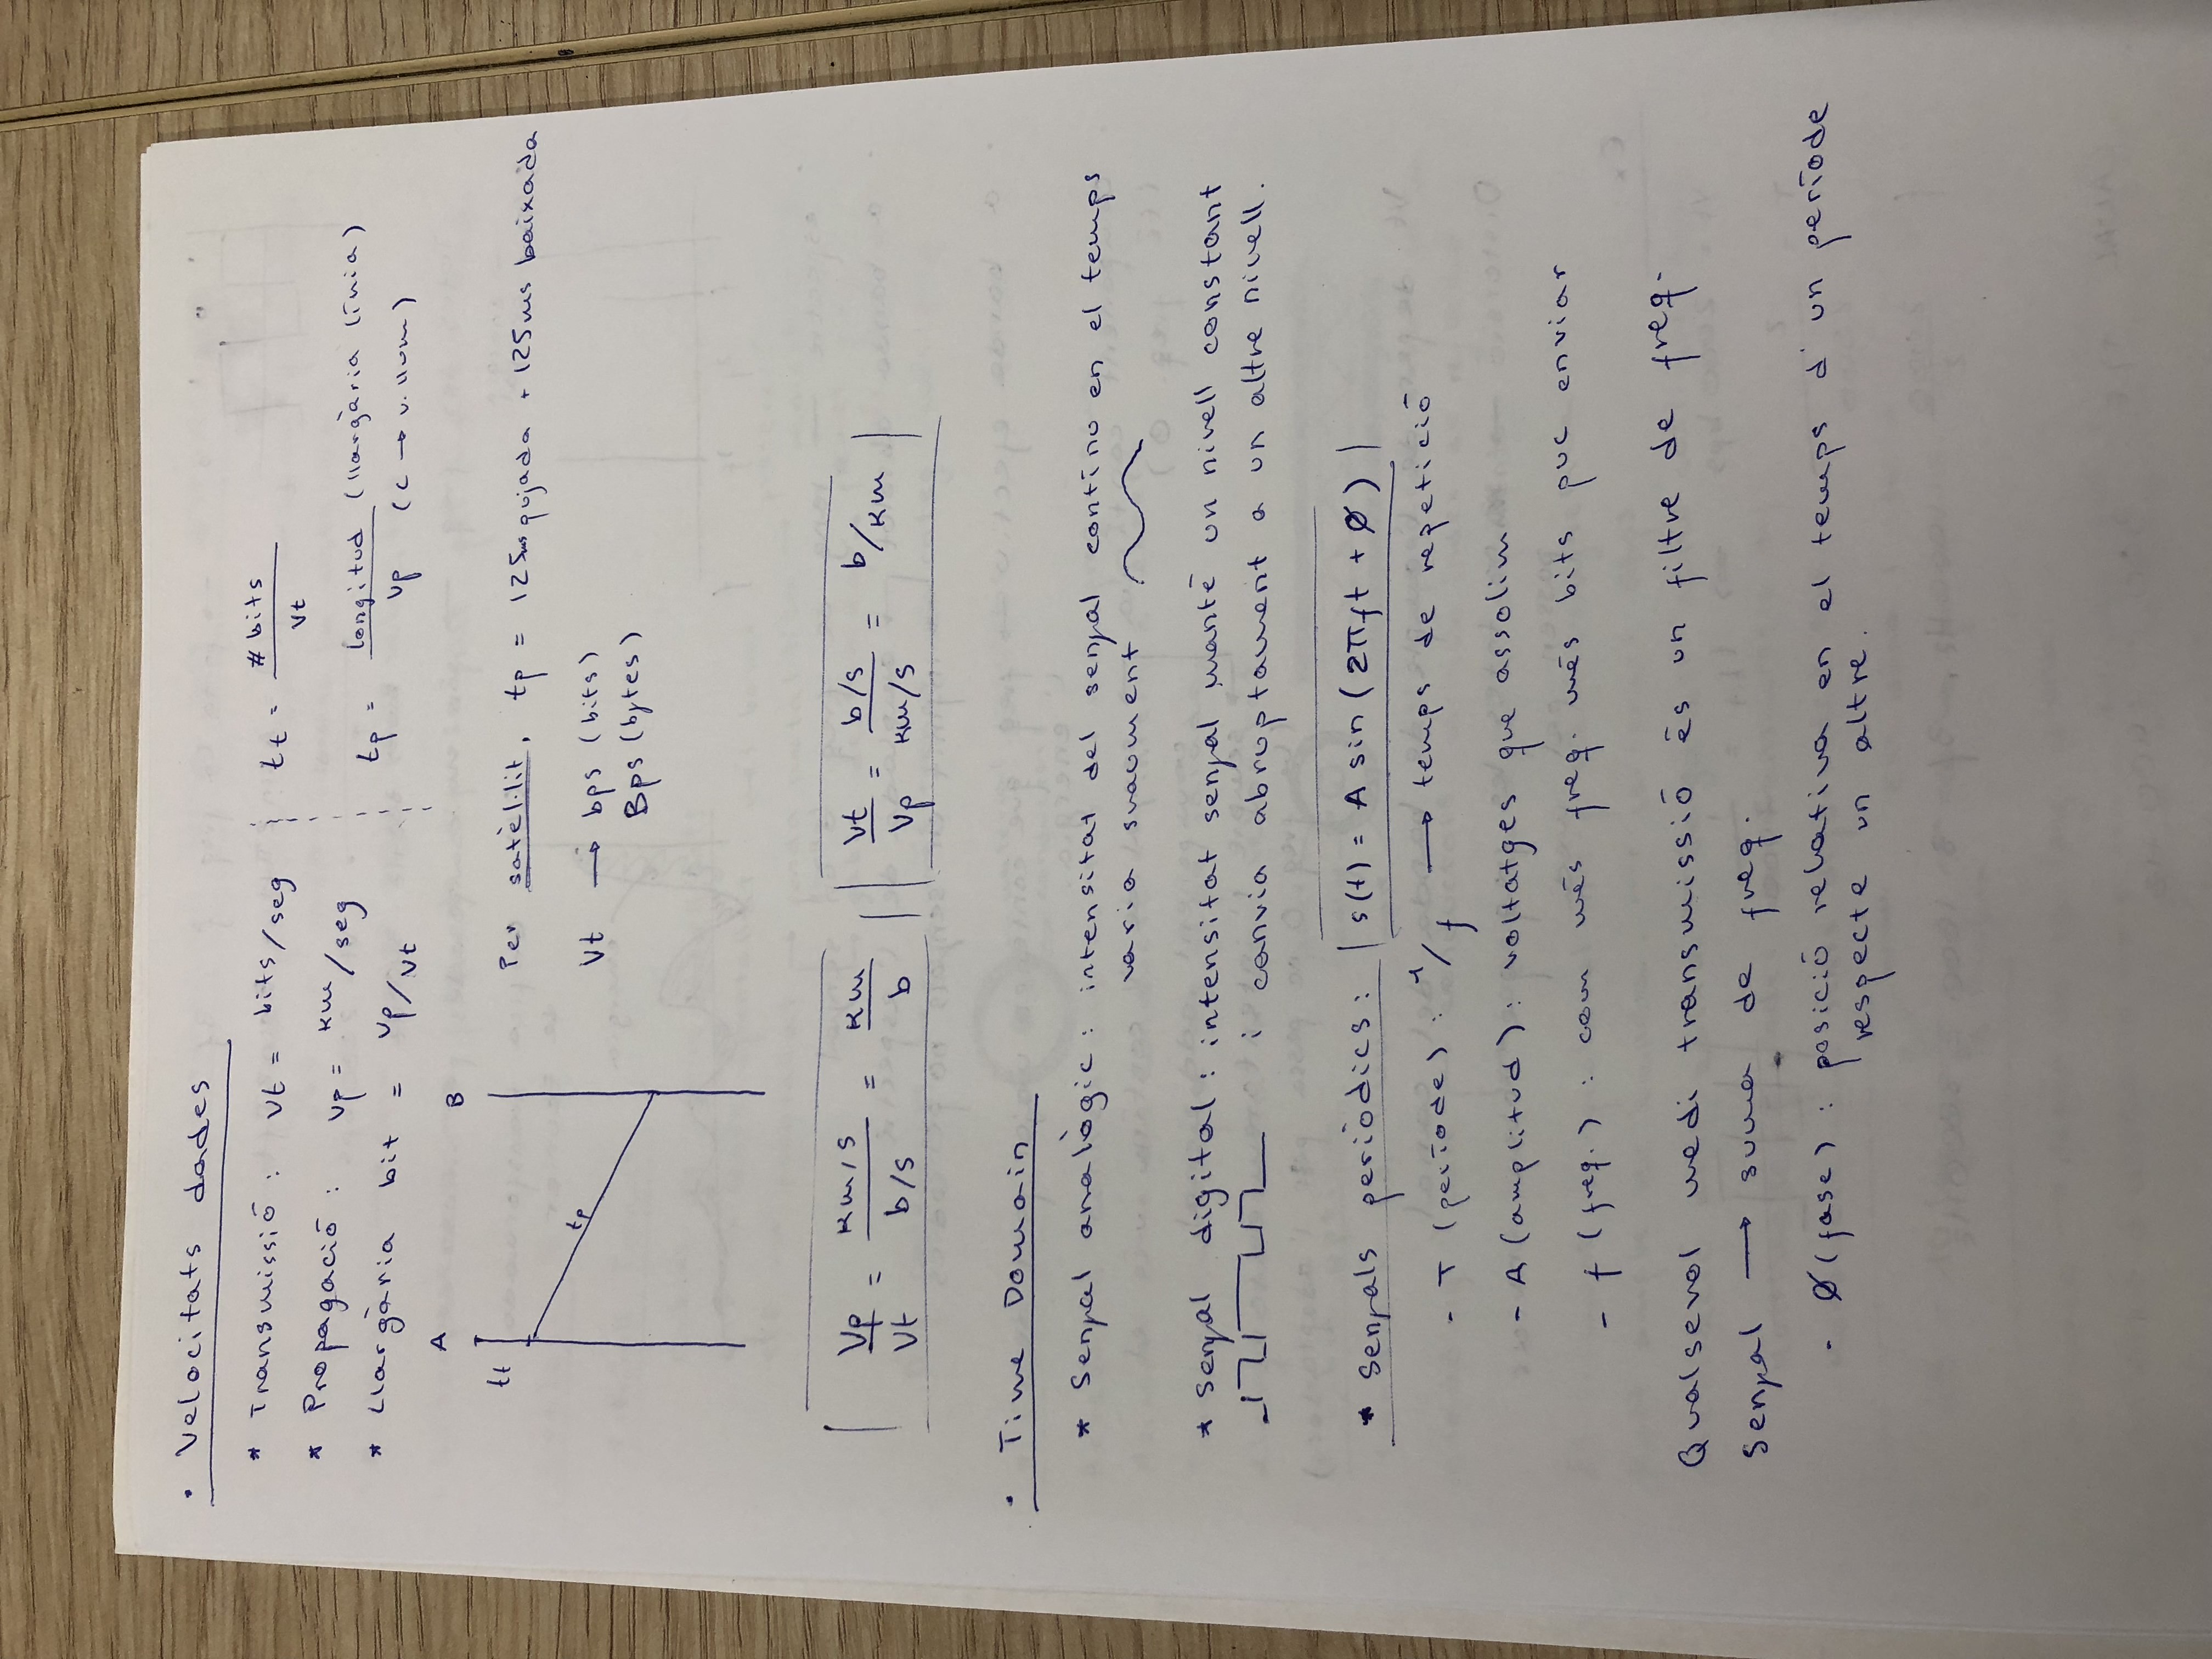 • Velocitats dades
* Transmissió : vt = bits/seg
* Propagació : vp = km/seg
* Llargària bit = vp/vt
tt = # bits / vt
tp = longitud (llargària línia) / vp (c → v. llum)
A B
tt
tp
Per satèl·lit, tp = 125ms pujada + 125ms baixada
Vt → bps (bits)
Bps (bytes)
Vp/Vt = km/s / b/s = km/b
Vt/Vp = b/s / km/s = b/km
• Time Domain
* Senyal analògic : intensitat del senyal contínu en el temps
varia suaument
* Senyal digital : intensitat senyal manté un nivell constant
i canvia abruptament a un altre nivell.
* Senyals periòdics : s(t) = A sin (2πft + Ø)
- T (període) : 1/f → temps de repetició
- A (amplitud) : voltatges que assolim
- f (freq.) : com més freq. més bits puc enviar
Qualsevol medi transmissió és un filtre de freq.
Senyal → suma de freq.
- Ø (fase) : posició relativa en el temps d'un període
respecte un altre.